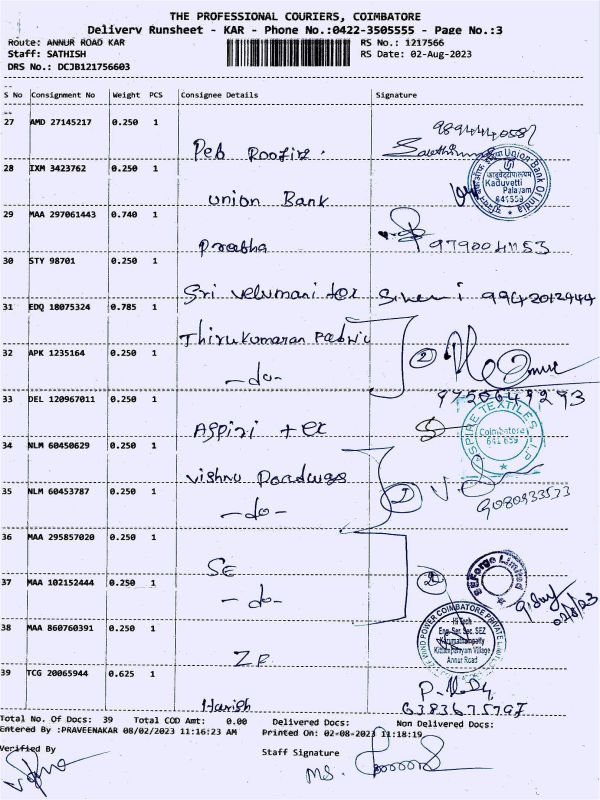 THE PROFESSIONAL COURIERS, COIMBATORE
Delivery Runsheet - KAR - Phone No.:0422-3505555 - Page No.:3
Route: ANNUR ROAD KAR
RS No.: 1217566
Staff: SATHISH
RS Date: 02-Aug-2023
DRS No.: DCJB121756603
S No Consignment No Weight PCS Consignee Details Signature
27 AMD 27145217 0.250 1
9894440587
Peb Roofing
28 IXM 3423762 0.250 1
Union Bank
Union Bank Of India
Kaduvetti
Palayam
641559
29 MAA 297061443 0.740 1
Prabha
30 STY 98701 0.250 1
Sri Velumani tex
9942012944
31 EDQ 18075324 0.785 1
Thirukumaran Fabric
32 APK 1235164 0.250 1
-do-
2
33 DEL 120967011 0.250 1
9750649293
Aspiri tex
ASPIRE TEXTILES
Coimbatore
641 659
34 NLM 60450629 0.250 1
Vishnu
35 NLM 60453787 0.250 1
-do-
9080933573
36 MAA 295857020 0.250 1
SE
37 MAA 102152444 0.250 1
-do-
2
SE Forge Limited
38 MAA 860760391 0.250 1
ZF
COIMBATORE PRIVATE
Hi Tech
Eng. Ser. Sec. SEZ
Karumathampatty
Kittampalayam Village
Annur Road
39 TCG 20065944 0.625 1
Harish
Total No. Of Docs: 39 Total COD Amt: 0.00 Delivered Docs: Non Delivered Docs:
Entered By :PRAVEENAKAR 08/02/2023 11:16:23 AM Printed On: 02-08-2023 11:18:19
Verified By
Staff Signature